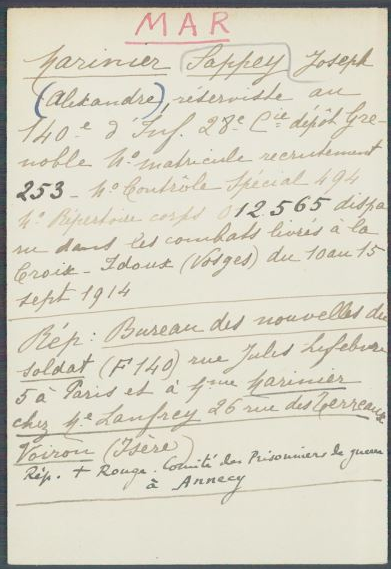 MAR
Marinier Sappey Joseph
(Alexandre), réserviste au
140e d'Inf. 28e Cie dépôt Gre-
noble No matricule recrutement
253 - No Contrôle Spécial 494
No Répertoire corps 012.565 dispa
ru dans les combats livrés à la
Croix-Idoux (Vosges) du 10 au 15
sept 1914
Rép: Bureau des nouvelles du
soldat (F140) rue Jules Lefebvre
5 à Paris et à Mme Marinier
chez Me Lanfrey 26 rue des Terreaux
Voiron (Isère)
Rép. + Rouge. Comité des Prisonniers de guerre
à Annecy